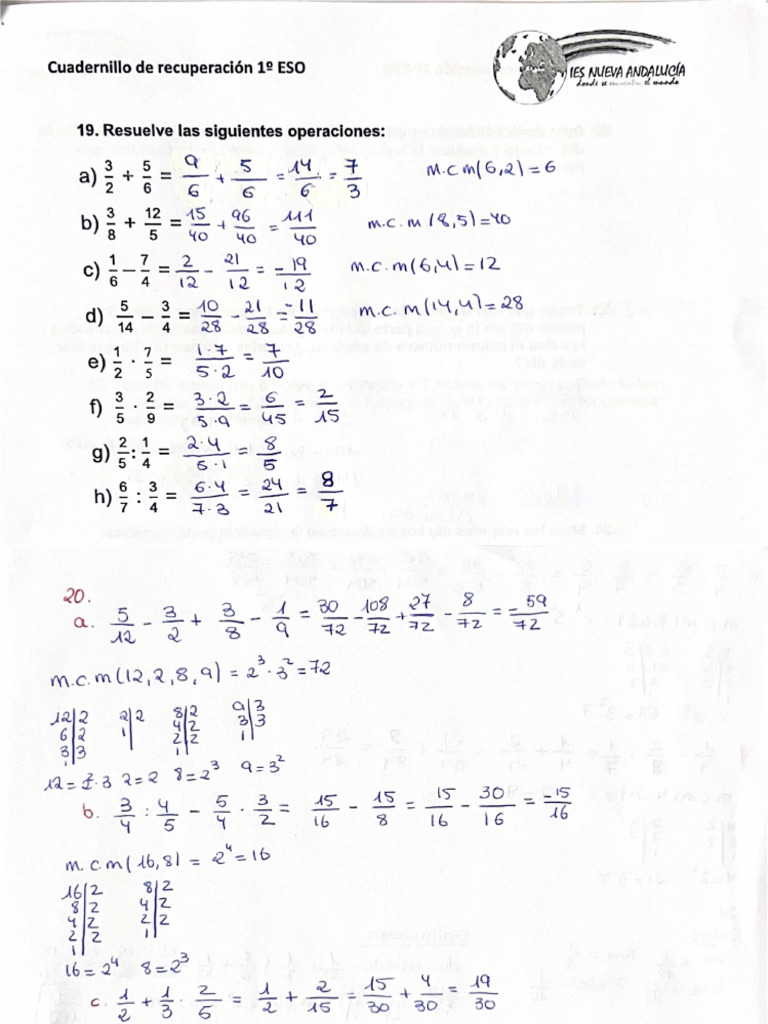 Cuadernillo de recuperación 1º ESO
IES NUEVA ANDALUCÍA
donde se encuentra el mundo
19. Resuelve las siguientes operaciones:
a) 3/2 + 5/6 = 9/6 + 5/6 = 14/6 = 7/3 m.c.m(6,2)=6
b) 3/8 + 12/5 = 15/40 + 96/40 = 111/40 m.c.m(8,5)=40
c) 1/6 − 7/4 = 2/12 − 21/12 = −19/12 m.c.m(6,4)=12
d) 5/14 − 3/4 = 10/28 − 21/28 = −11/28 m.c.m(14,4)=28
e) 1/2 · 7/5 = 1·7/5·2 = 7/10
f) 3/5 · 2/9 = 3·2/5·9 = 6/45 = 2/15
g) 2/5 : 1/4 = 2·4/5·1 = 8/5
h) 6/7 : 3/4 = 6·4/7·3 = 24/21 = 8/7
20.
a. 5/12 − 3/2 + 3/8 − 1/9 = 30/72 − 108/72 + 27/72 − 8/72 = −59/72
m.c.m(12,2,8,9) = 2³·3² = 72
12|2 2|2 8|2 9|3
6|2 1| 4|2 3|3
3|3 2|2 1|
1| 1|
12=2²·3 2=2 8=2³ 9=3²
b. 3/4 : 4/5 − 5/4 · 3/2 = 15/16 − 15/8 = 15/16 − 30/16 = −15/16
m.c.m(16,8) = 2⁴ = 16
16|2 8|2
8|2 4|2
4|2 2|2
2|2 1|
1|
16=2⁴ 8=2³
c. 1/2 + 1/3 · 2/5 = 1/2 + 2/15 = 15/30 + 4/30 = 19/30